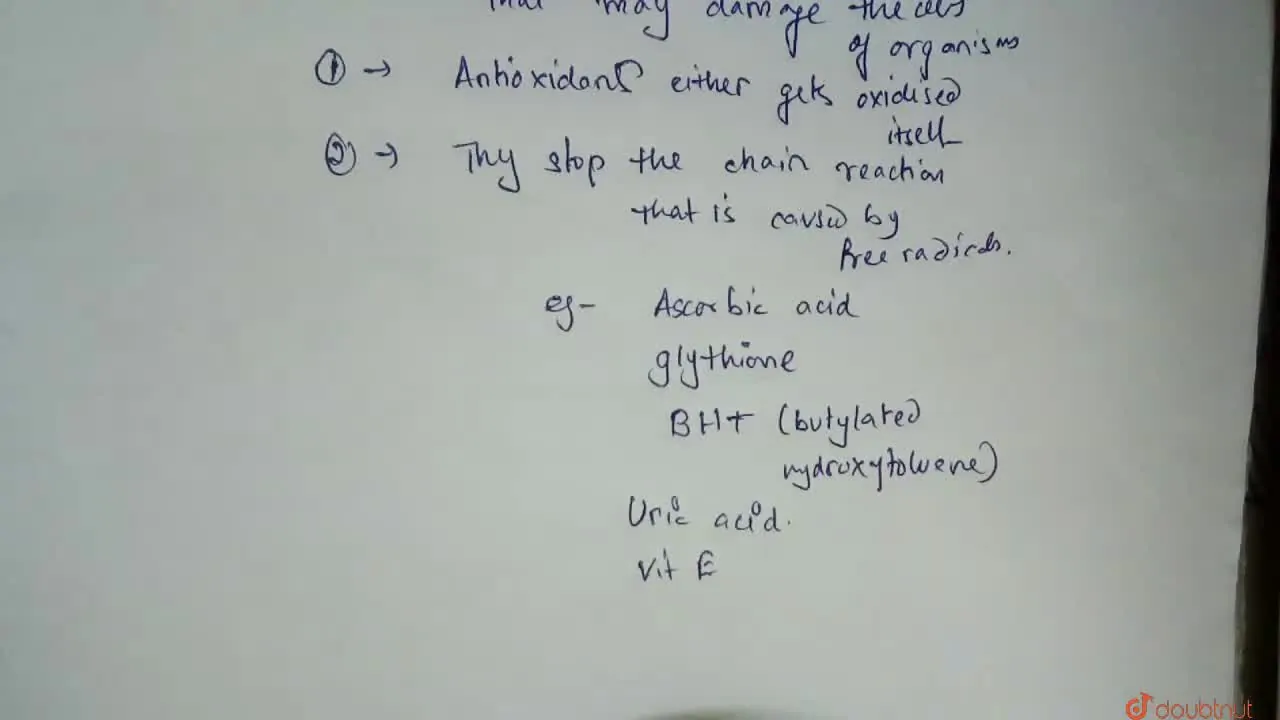 that may damage the cells
of organisms
① → Antioxidants either gets oxidised
itself
② → Thy stop the chain reaction
that is caused by
free radicals.
eg- Ascorbic acid
glythione
BHT (butylated
hydroxytoluene)
Uric acid.
Vit E
doubtnut